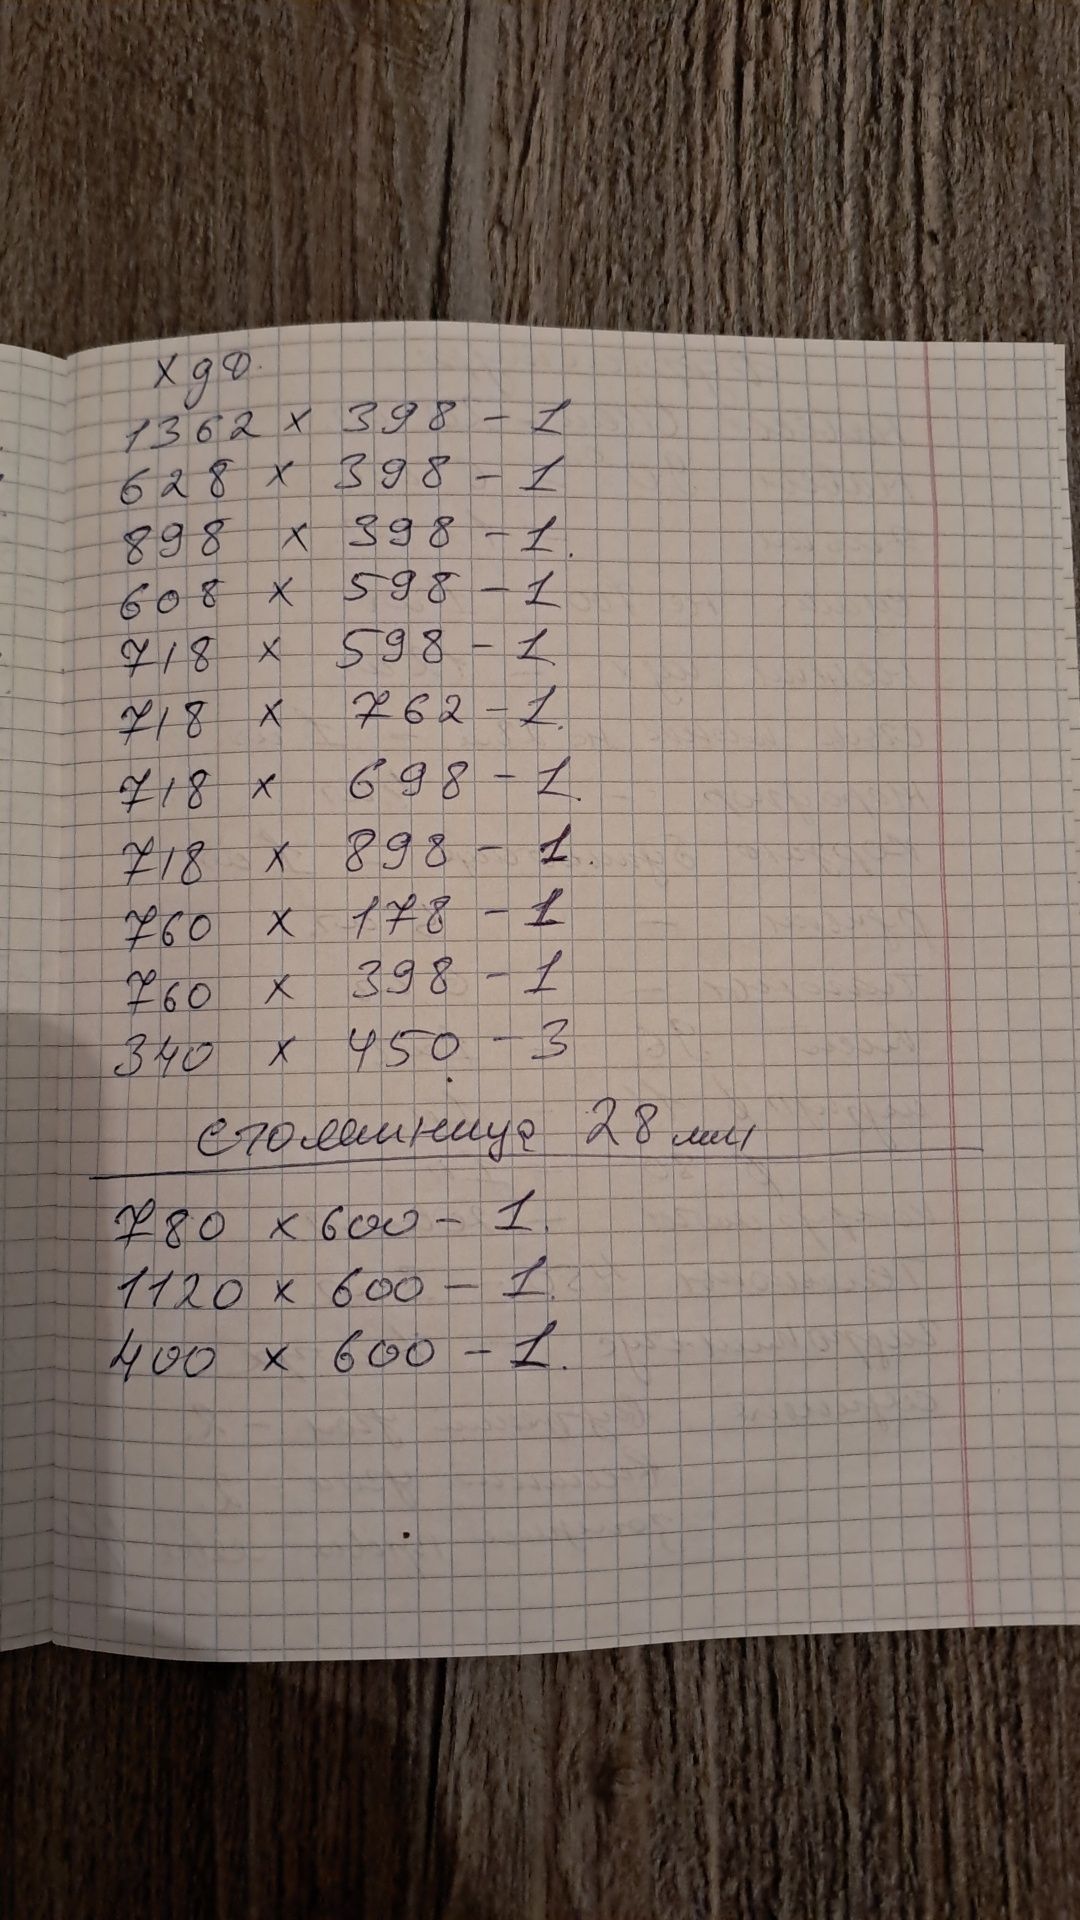 хдф.
1362 x 398 - 1
628 x 398 - 1
898 x 398 - 1.
608 x 598 - 1
718 x 598 - 1
718 x 762 - 1.
718 x 698 - 1.
718 x 898 - 1.
760 x 178 - 1
760 x 398 - 1
340 x 450 - 3
столешница 28 мм
780 x 600 - 1.
1120 x 600 - 1.
400 x 600 - 1.